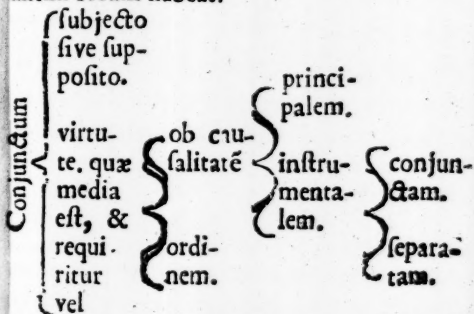 Conjunctum
ſubjecto
ſive ſup-
poſito.
virtu-
te. quæ
media
eſt, &
requi-
ritur
vel
ob cau-
ſalitatē
ordi-
nem.
princi-
palem.
inſtru-
menta-
lem.
conjun-
ctam.
ſepara-
tam.